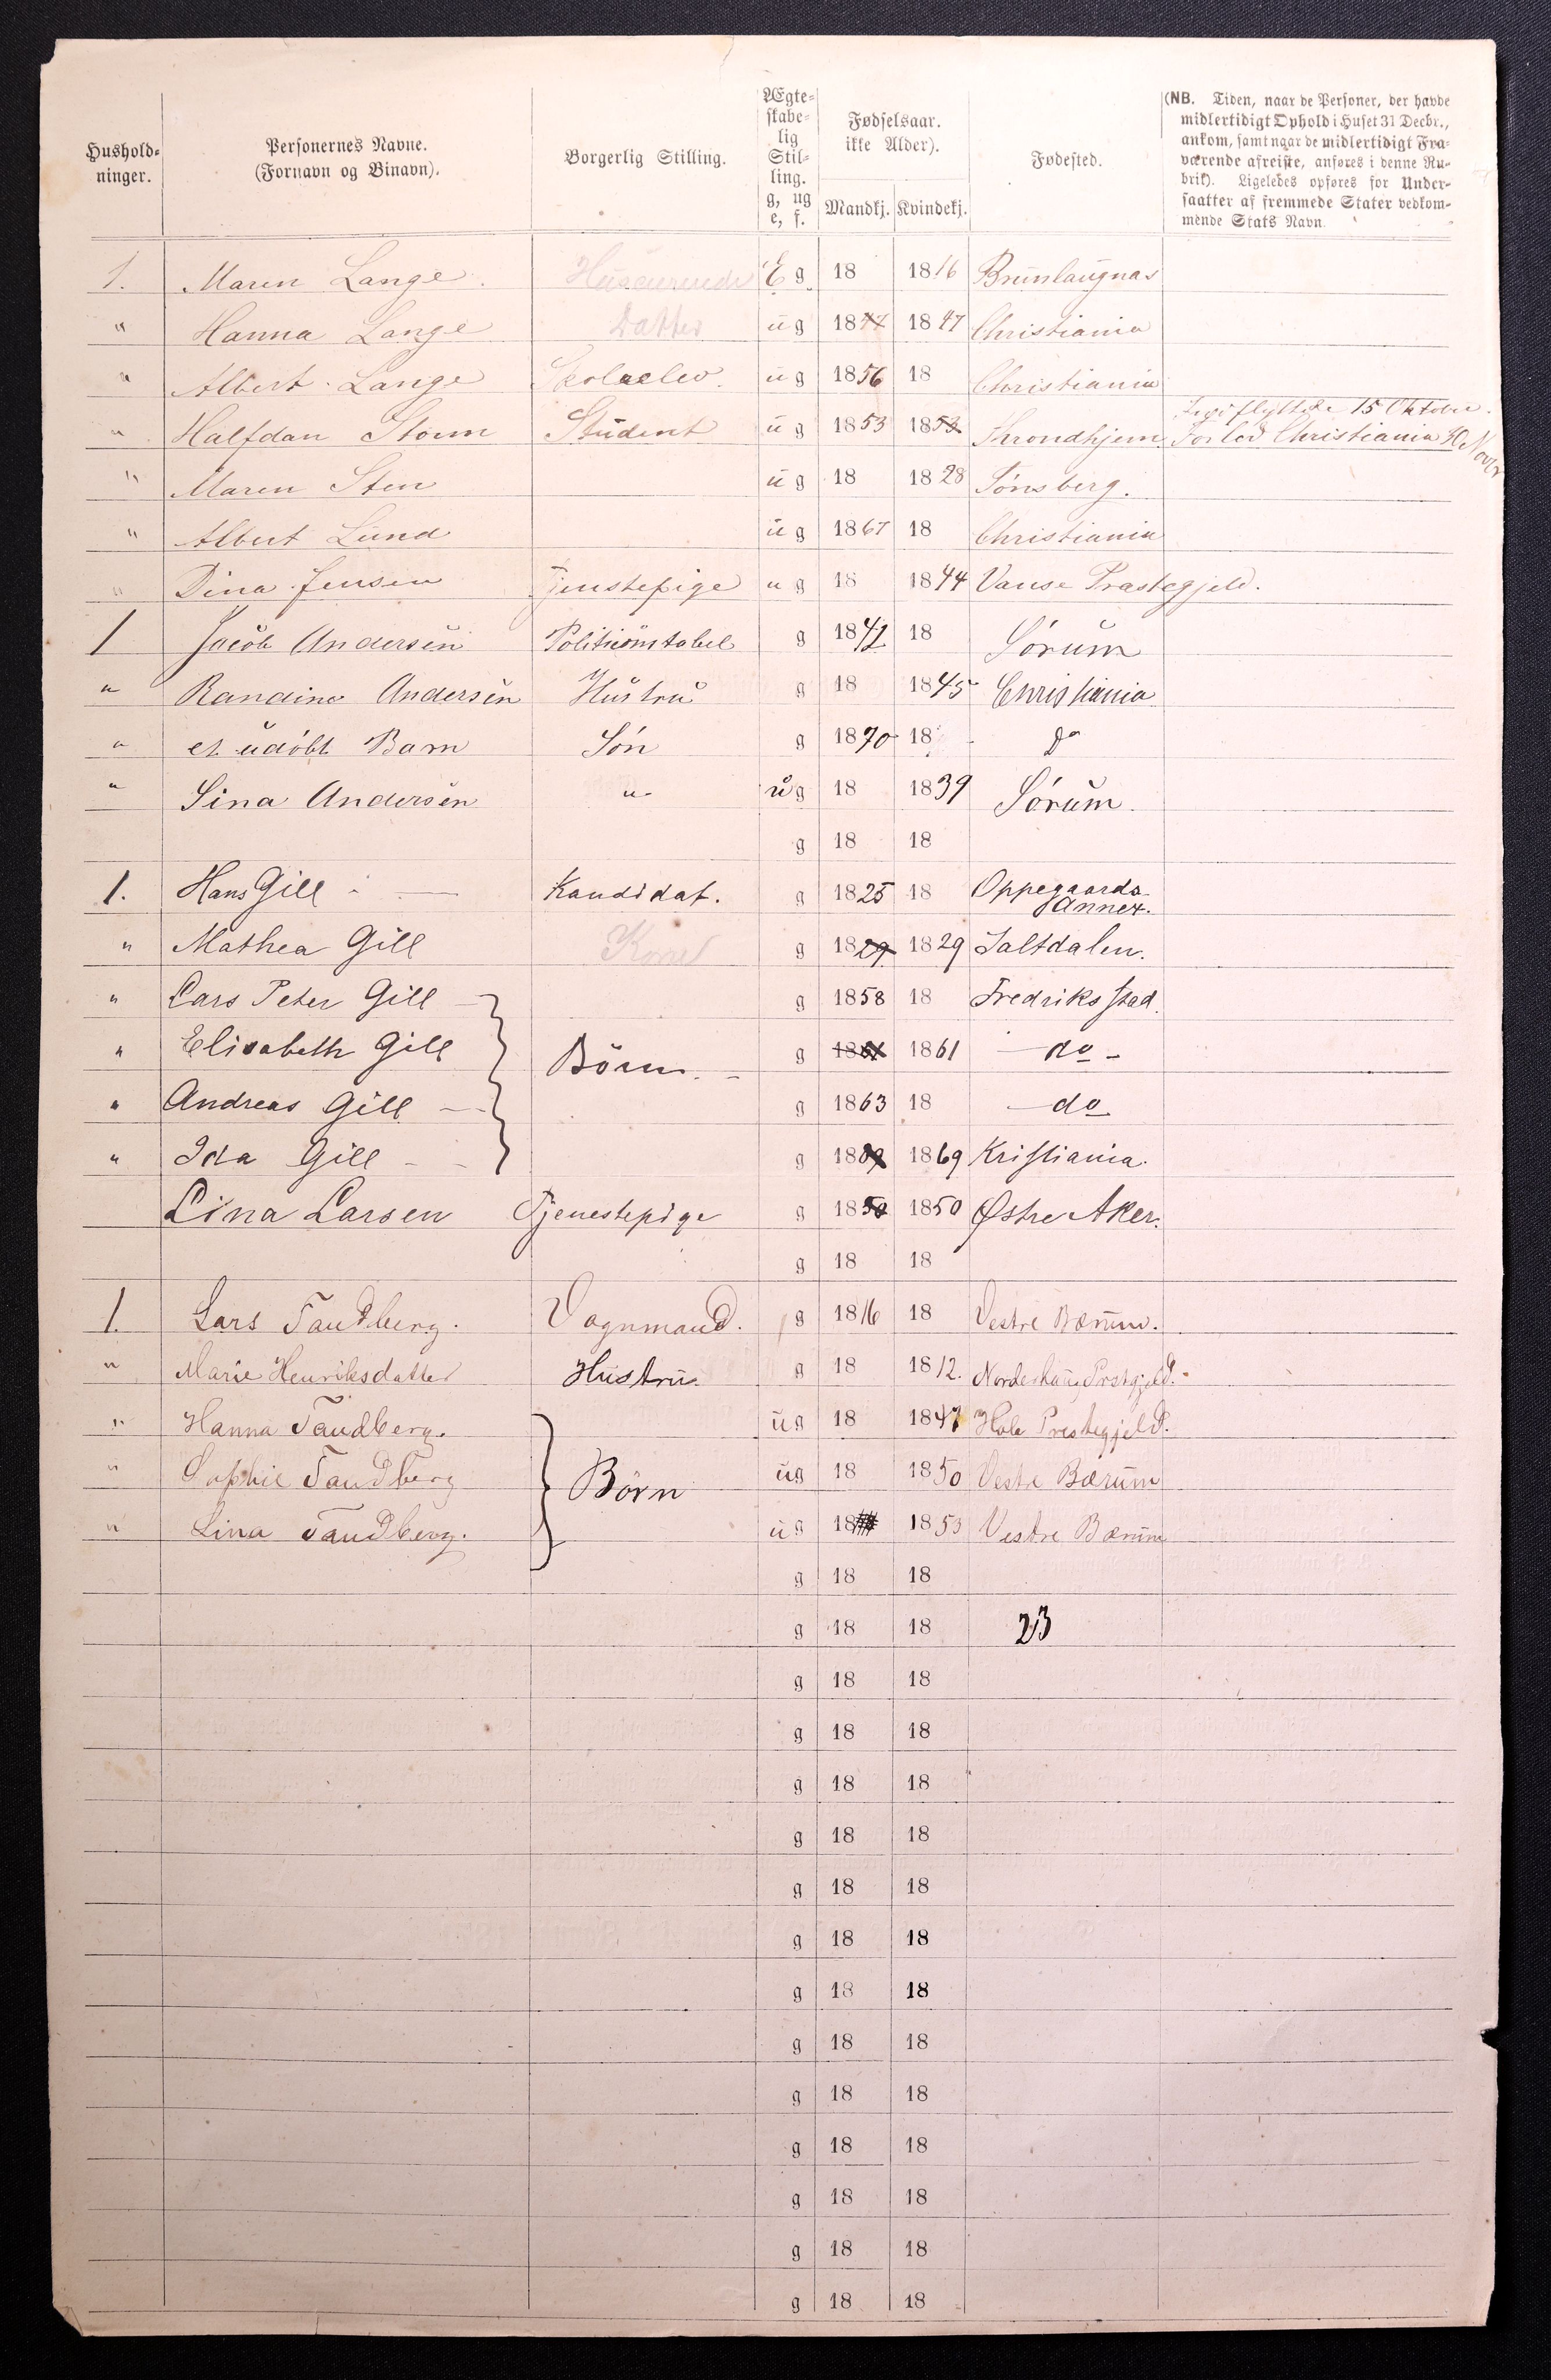 Hushold-
ninger.
Personernes Navne.
(Fornavn og Binavn).
Borgerlig Stilling.
Ægte-
skabe-
lig
Stil-
ling.
g, ug
e, f.
Fødselsaar.
ikke Alder).
Mandkj. Kvindekj.
Fødested.
(NB. Tiden, naar de Personer, der havde
midlertidigt Ophold i Huset 31 Decbr.,
ankom, samt naar de midlertidigt Fra-
værende afreiste, anføres i denne Ru-
brik). Ligeledes opføres for Under-
saatter af fremmede Stater vedkom-
mende Stats Navn.
1. Maren Lange E g 18 1816 Brunlaugnas
" Hanna Lange Datter ug 1847 1847 Christiania
" Albert Lange Skoleelev. ug 1856 18 Christiania
" Halfdan Storm Student ug 1853 1853 Throndhjem 15 Oktober. Forlod Christiania 30 Novbr
" Maren Sten ug 18 1828 Tönsberg.
" Albert Lund ug 1867 18 Christiania
" Dina Jensen Tjenstepige ug 18 1844 Vanse Prastegjeld.
1 Jacob Andersen Politikonstabel g 1842 18 Sörum
" Randine Andersen Hustru g 18 1845 Christiania
" et udöbt Barn Sön g 1870 18 Do
" Sina Andersen " ug 18 1839 Sörum.
g 18 18
1. Hans Gill Kandidat. g 1825 18 Oppegaards
Annex.
" Mathea Gill Kone g 1829 1829 Saltdalen.
" Lars Peter Gill g 1858 18 Fredriksstad.
" Elisabeth Gill Börn. g 1861 1861 do
" Andreas Gill g 1863 18 do
" Ida Gill g 1869 1869 Kristiania.
Lina Larsen Tjenestepige g 1850 1850 Østre Aker.
g 18 18
1. Lars Tandberg. Vognmand. g 1816 18 Vestre Bærum.
" Marie Henriksdatter Hustru. g 18 1812. Norderhaug Prstgjeld.
" Hanna Tandberg. ug 18 1847 Hole Prestegjeld.
" Sophie Tandberg Börn ug 18 1850 Vestre Bærum
" Lina Tandberg. ug 18 1853 Vestre Bærum
g 18 18
g 18 18 23
g 18 18
g 18 18
g 18 18
g 18 18
g 18 18
g 18 18
g 18 18
g 18 18
g 18 18
g 18 18
g 18 18
g 18 18
g 18 18